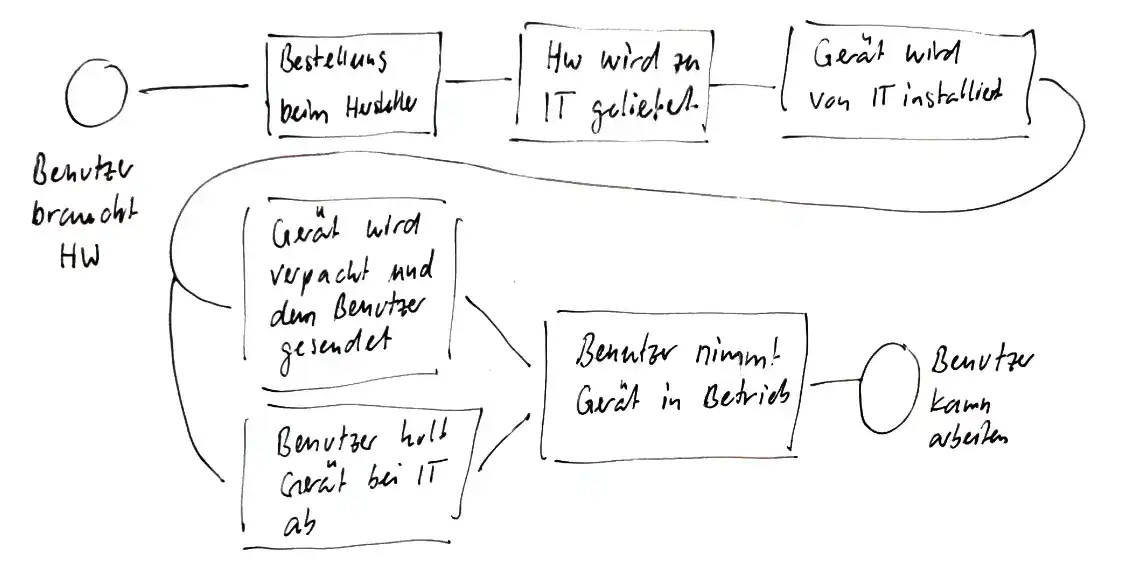 Benutzer
braucht
HW
Bestellung
beim Hersteller
HW wird zu
IT geliefert
Gerät wird
von IT installiert
Gerät wird
verpacht und
dem Benutzer
gesendet
Benutzer holt
Gerät bei IT
ab
Benutzer nimmt
Gerät in Betrieb
Benutzer
kann
arbeiten